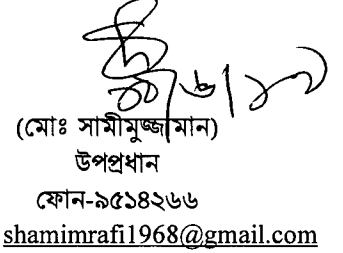 (মোঃ সামীমুজ্জামান)
উপপ্রধান
ফোন-৯৫১৪২৬৬
shamimrafi1968@gmail.com